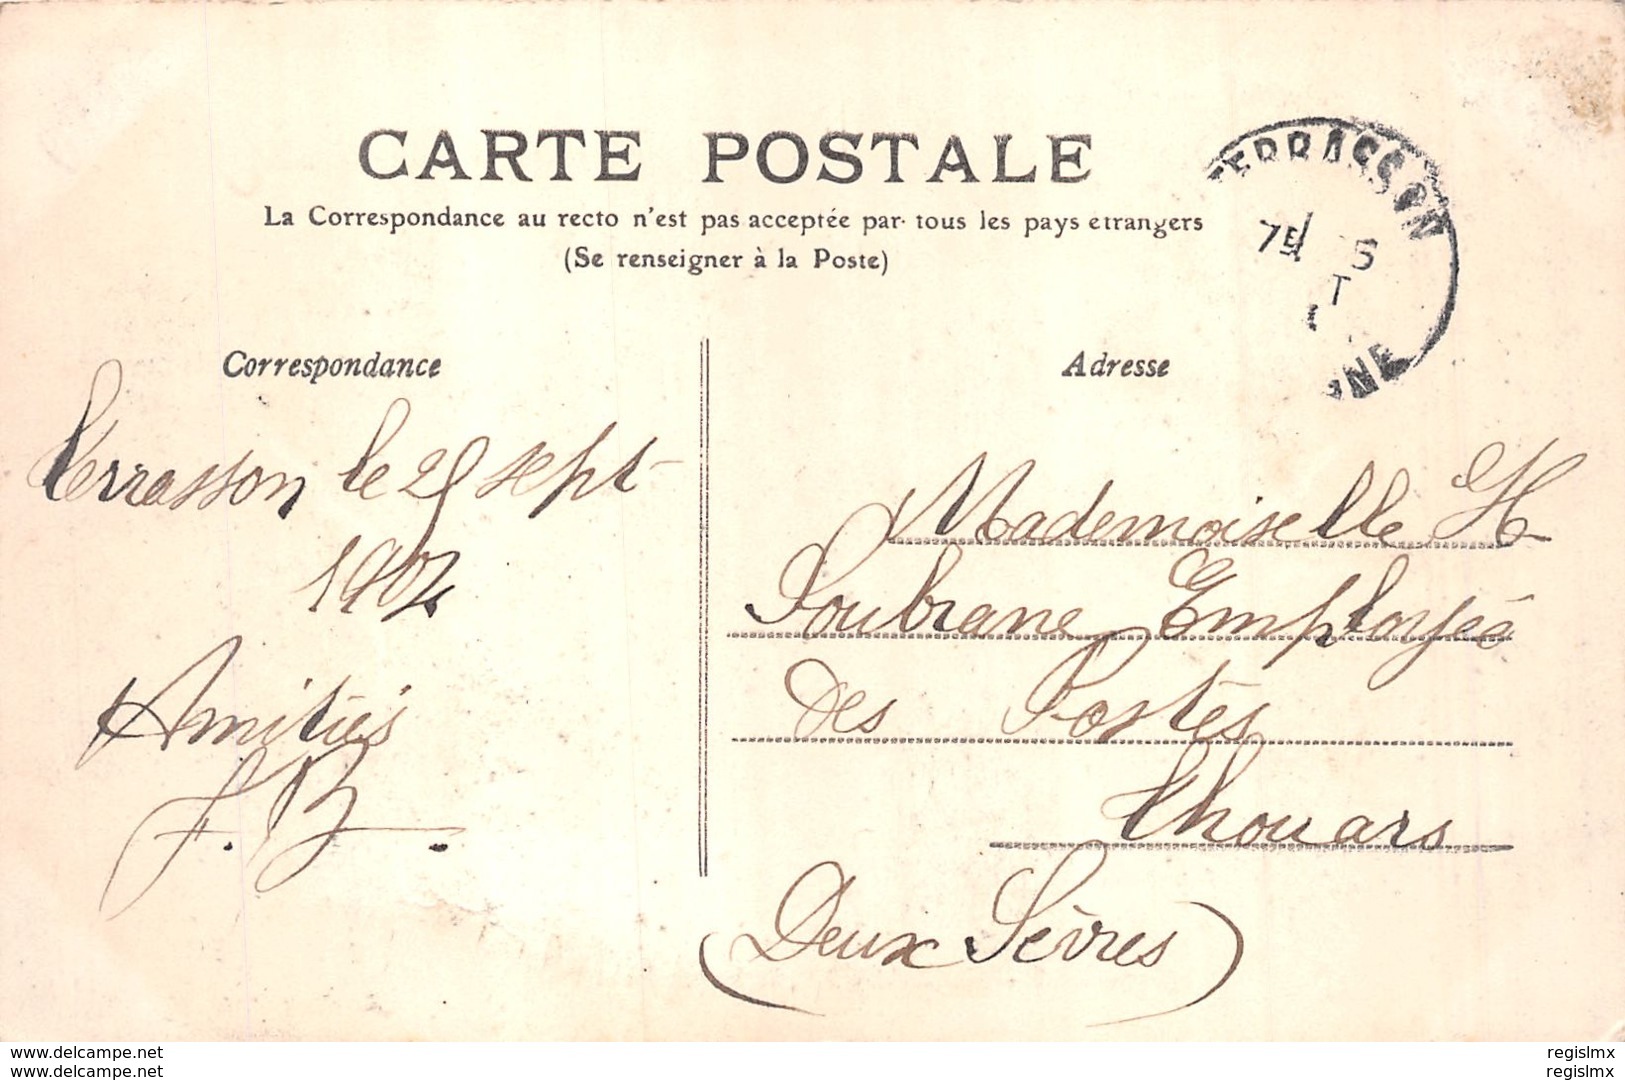 CARTE POSTALE
La Correspondance au recto n'est pas acceptée par tous les pays etrangers
(Se renseigner à la Poste)
TERRASSON
7E 5
Correspondance
Adresse
Terrasson le 25 sept
1904
Amitiés
F. B.
Mademoiselle H
Soubrane Employée
des Postes
Thouars
(Deux Sèvres)
delcampe.net
delcampe.net
regislmx
regislmx